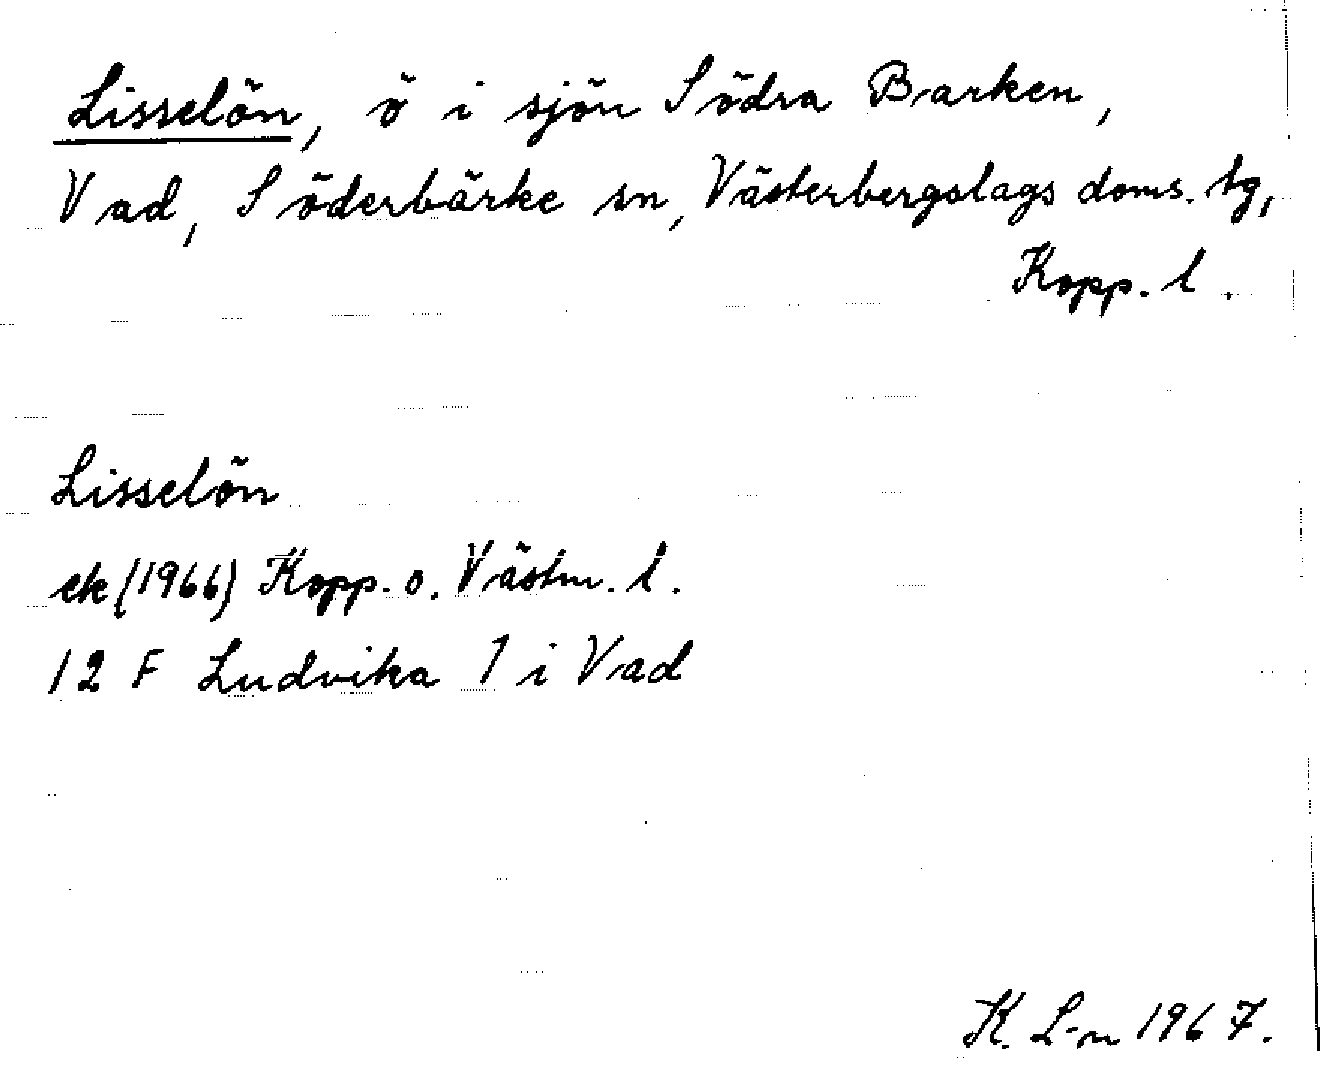 Lisselön, ö i sjön Södra Barken,
Vad, Söderbärke sn, Västerbergslags doms. tg,
Kopp. l.
Lisselön
ek (1966) Kopp. o. Västm. l.
12 F Ludvika 1 i Vad
K. L-n 1967.